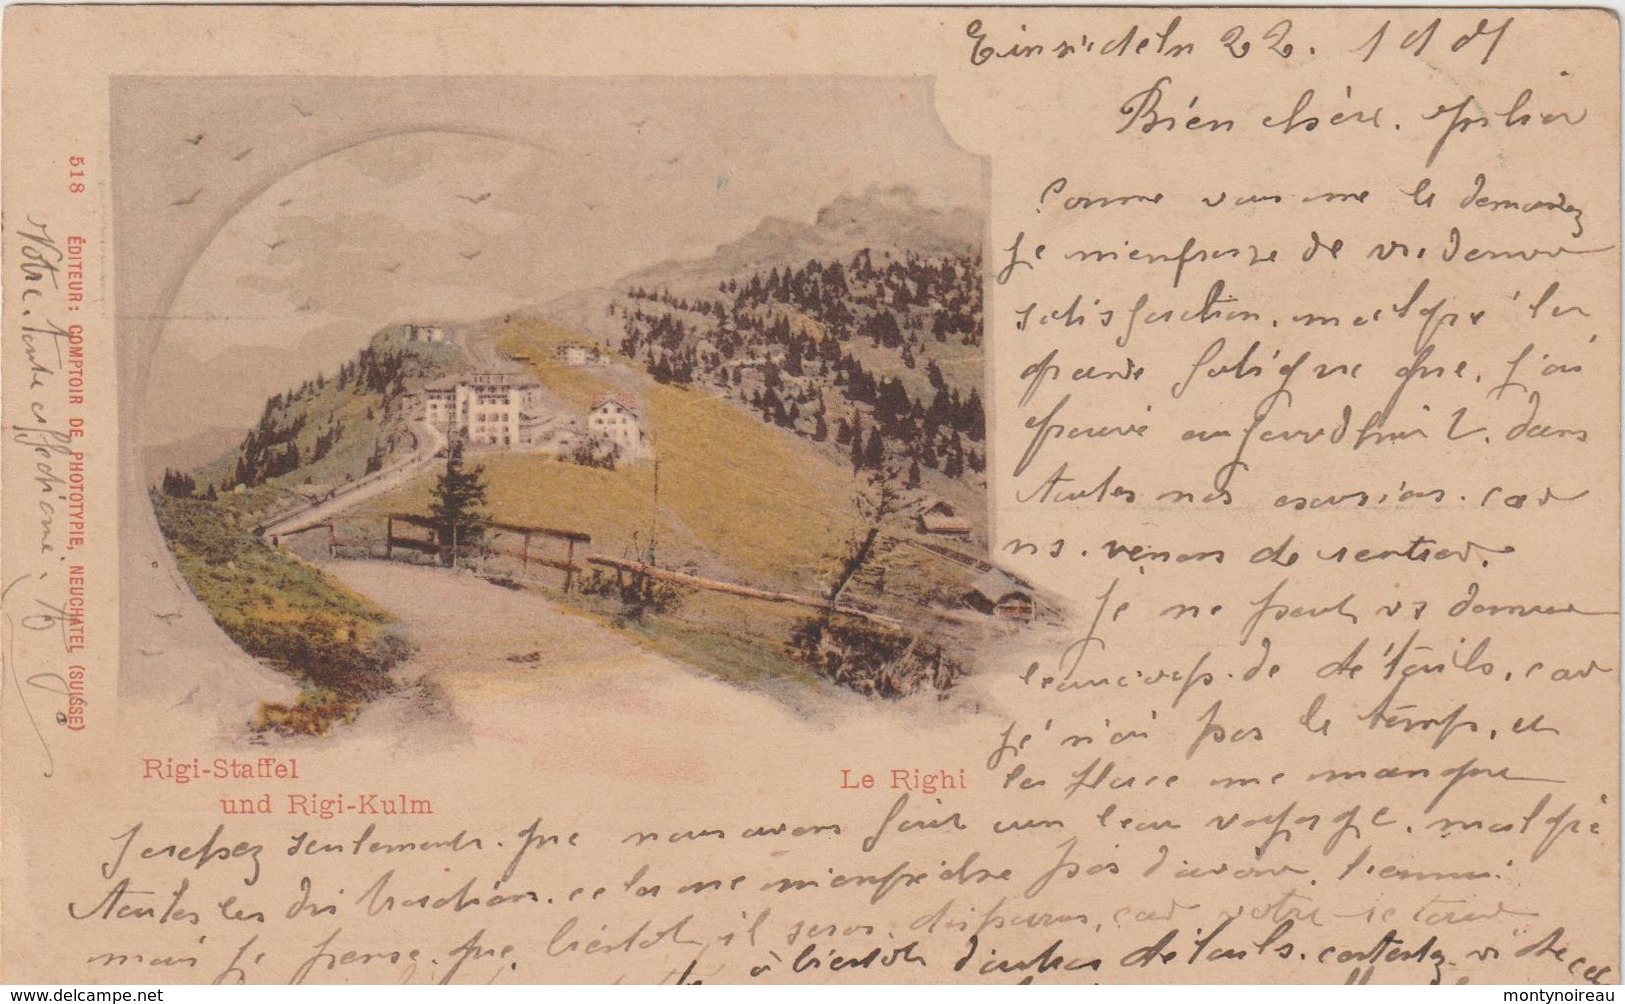 Einsiedeln 22.
Bien chère.
Comme vous me le demandez
je m'enpresse de vs. donner
satisfaction. malgré la
grande fatigue que. j'ai
éprouvé aujourd'hui. dans
toutes nos excursions. car
ns. venons de rentrer.
Je ne peut vs donner
beaucoup. de détails. car
je n'ai pas le temps, et
la place me manque
sachez seulement. que nous avons fait un beau voyage. malgré
toutes les distractions. cela me m'enpêche pas d'avoir. l'ennui.
mais je pense. que. bientôt, il sera. disparus, car votre retour
à bientôt d'autres détails. contentez vs de
Votre. toute affectionné.
518 ÉDITEUR: COMPTOIR DE PHOTOTYPIE, NEUCHATEL (SUISSE)
Rigi-Staffel
und Rigi-Kulm
Le Righi
www.delcampe.net
montynoireau